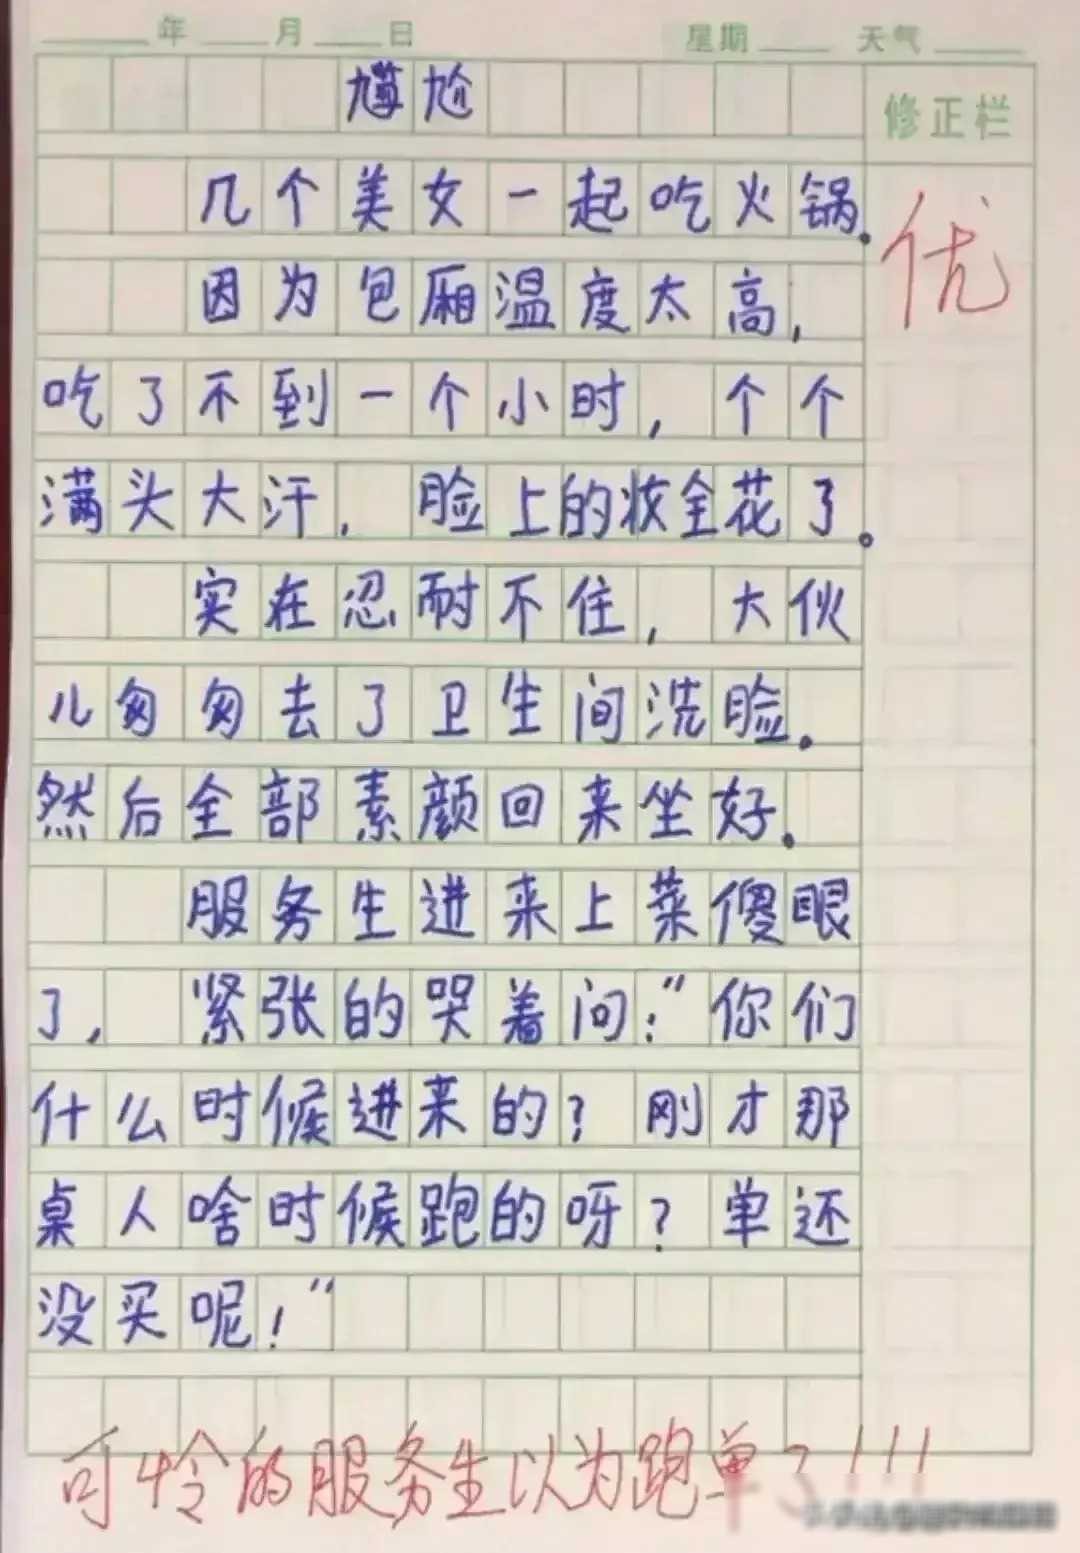 年 月 日 星期 天气
尴尬
修正栏
几个美女一起吃火锅.
优
因为包厢温度太高,
吃了不到一个小时,个个
满头大汗,脸上的妆全花了。
实在忍耐不住,大伙
儿匆匆去了卫生间洗脸.
然后全部素颜回来坐好.
服务生进来上菜傻眼
了,紧张的哭着问:“你们
什么时候进来的?刚才那
桌人啥时候跑的呀?单还
没买呢!”
可怜的服务生以为跑单了!!!